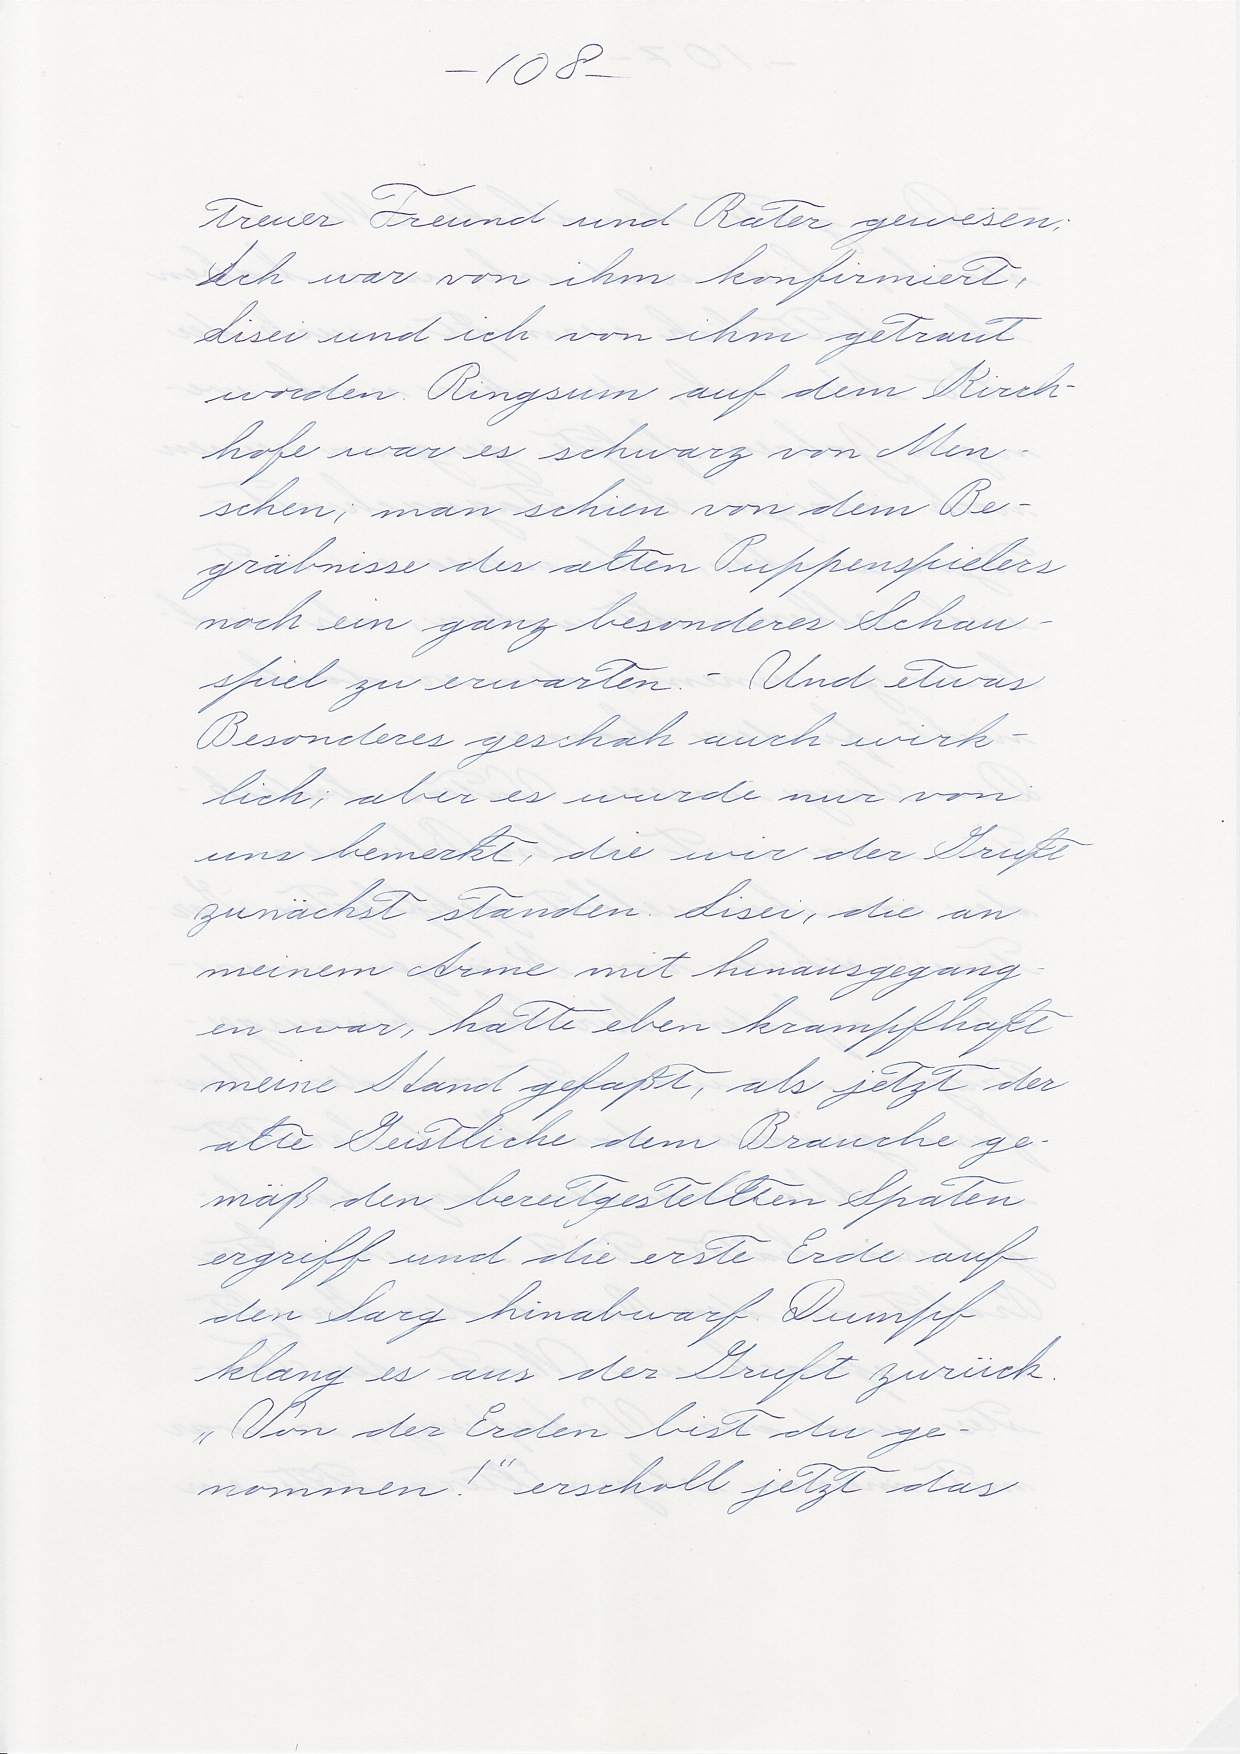 -108-
treuer Freund und Rater gewesen;
Ich war von ihm konfirmiert,
Lisei und ich von ihm getraut
worden. Ringsum auf dem Kirch-
hofe war es schwarz von Men-
schen; man schien von dem Be-
gräbnisse des alten Puppenspielers
noch ein ganz besonderes Schau-
spiel zu erwarten. - Und etwas
Besonderes geschah auch wirk-
lich; aber es wurde nur von
uns bemerkt, die wir der Gruft
zunächst standen. Lisei, die an
meinem Arme mit hinausgegang-
en war, hatte eben krampfhaft
meine Hand gefaßt, als jetzt der
alte Geistliche dem Brauche ge-
mäß den bereitgestellten Spaten
ergriff und die erste Erde auf
den Sarg hinabwarf. Dumpf
klang es aus der Gruft zurück.
„Von der Erden bist du ge-
nommen!“ erscholl jetzt das